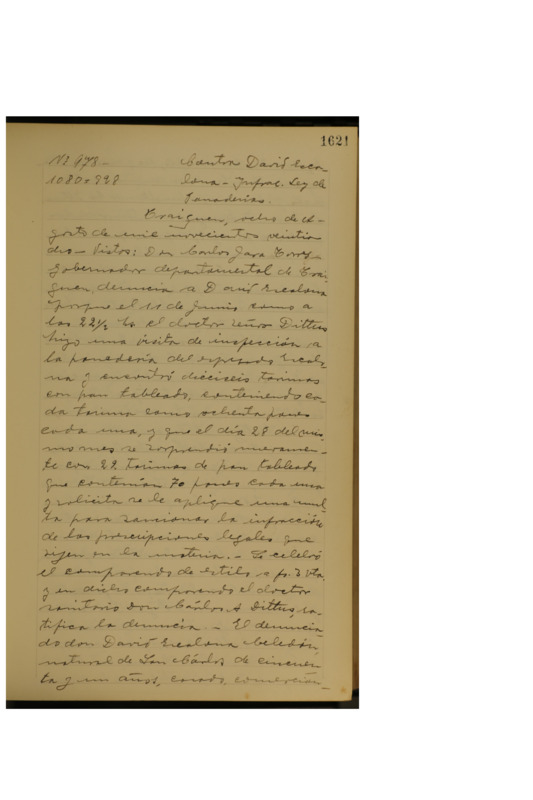 1621
Nº 978 -
Contra David Esca
1080 x 928
lona - Infrac. Ley de
Panaderías.
Traiguen, ocho de A-
gosto de mil novecientos veintio
cho - Vistos: Don Carlos Jara Torres
Gobernador departamental de Trai-
guen, denuncia a David Escalona
porque el 11 de Junio como a
las 22½ hs el doctor señor Dittus
hizo una visita de inspección a
la panadería del expresado Escalo-
na y encontró dieciseis tarimas
con pan tableado, conteniendo ca-
da tarima como ochenta panes
cada una, y que el día 28 del mis
mo mes se sorprendió nuevamen-
te con 22 tarimas de pan tableado
que contenían 70 panes cada una
y solicita se le aplique una mul
ta para sancionar la infracción
de las prescripciones legales que
rijen en la materia. - Se celebró
el comparendo de estilo a fs. 3 vta,
y en dicho comparendo el doctor
sanitario don Cárlos A Dittus, ra-
tifica la denuncia. - El denuncia-
do don David Escalona Celedón,
natural de San Cárlos de cincuen
ta y un años, casado, comercian-